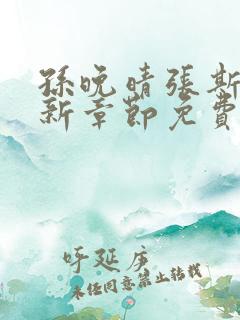 孫晚晴張斯
新章節免費
呼延庚
未经同意禁止转载